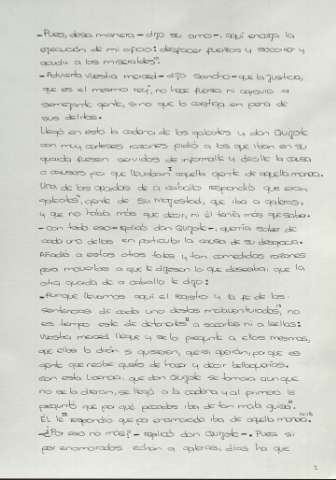 -Pues, desa manera - dijo su amo -, aquí encaja la
ejecución de mi oficio: desfacer fuerzas y socorrer y
acudir a los miserables".
- Advierta vuestra merced - dijo Sancho - que la justicia,
que es el mismo rey, no hace fuerza ni agravio a
semejante gente, sino que los castiga en pena de
sus delitos.
Llegó en esto la cadena de los galeotes y don Quijote
con muy corteses razones pidió a los que iban en su
guarda fuesen servidos de informalle y decille la causa
o causas por que llevaban aquella gente de aquella manera.
Una de las guardas de a caballo respondió que eran
galeotes, gente de Su Majestad, que iba a galeras,
y que no había más que decir, ni él tenía más que saber.
- Con todo eso - replicó don Quijote -, querría saber de
cada uno dellos en particular la causa de su desgracia.
Añadió a estas otras tales y tan comedidas razones
para moverlos a que le dijesen lo que deseaba, que la
otra guarda de a caballo le dijo:
- Aunque llevamos aquí el registro y la fe de las
sentencias de cada uno destos malaventurados, no
es tiempo este de detenerles a sacarlas ni a leellas:
vuestra merced llegue y se lo pregunte a ellos mesmos,
que ellos lo dirán si quisieren, que sí querrán, porque es
gente que recibe gusto de hacer y decir bellaquerías.
Con esta licencia, que don Quijote se tomara aunque
no se la dieran, se llegó a la cadena y al primero le
preguntó que por qué pecados iba de tan mala guisa".
Él le respondió que por enamorado iba de aquella manera.
- ¿Por eso no más? - replicó don Quijote -. Pues si
por enamorados echan a galeras, días ha que